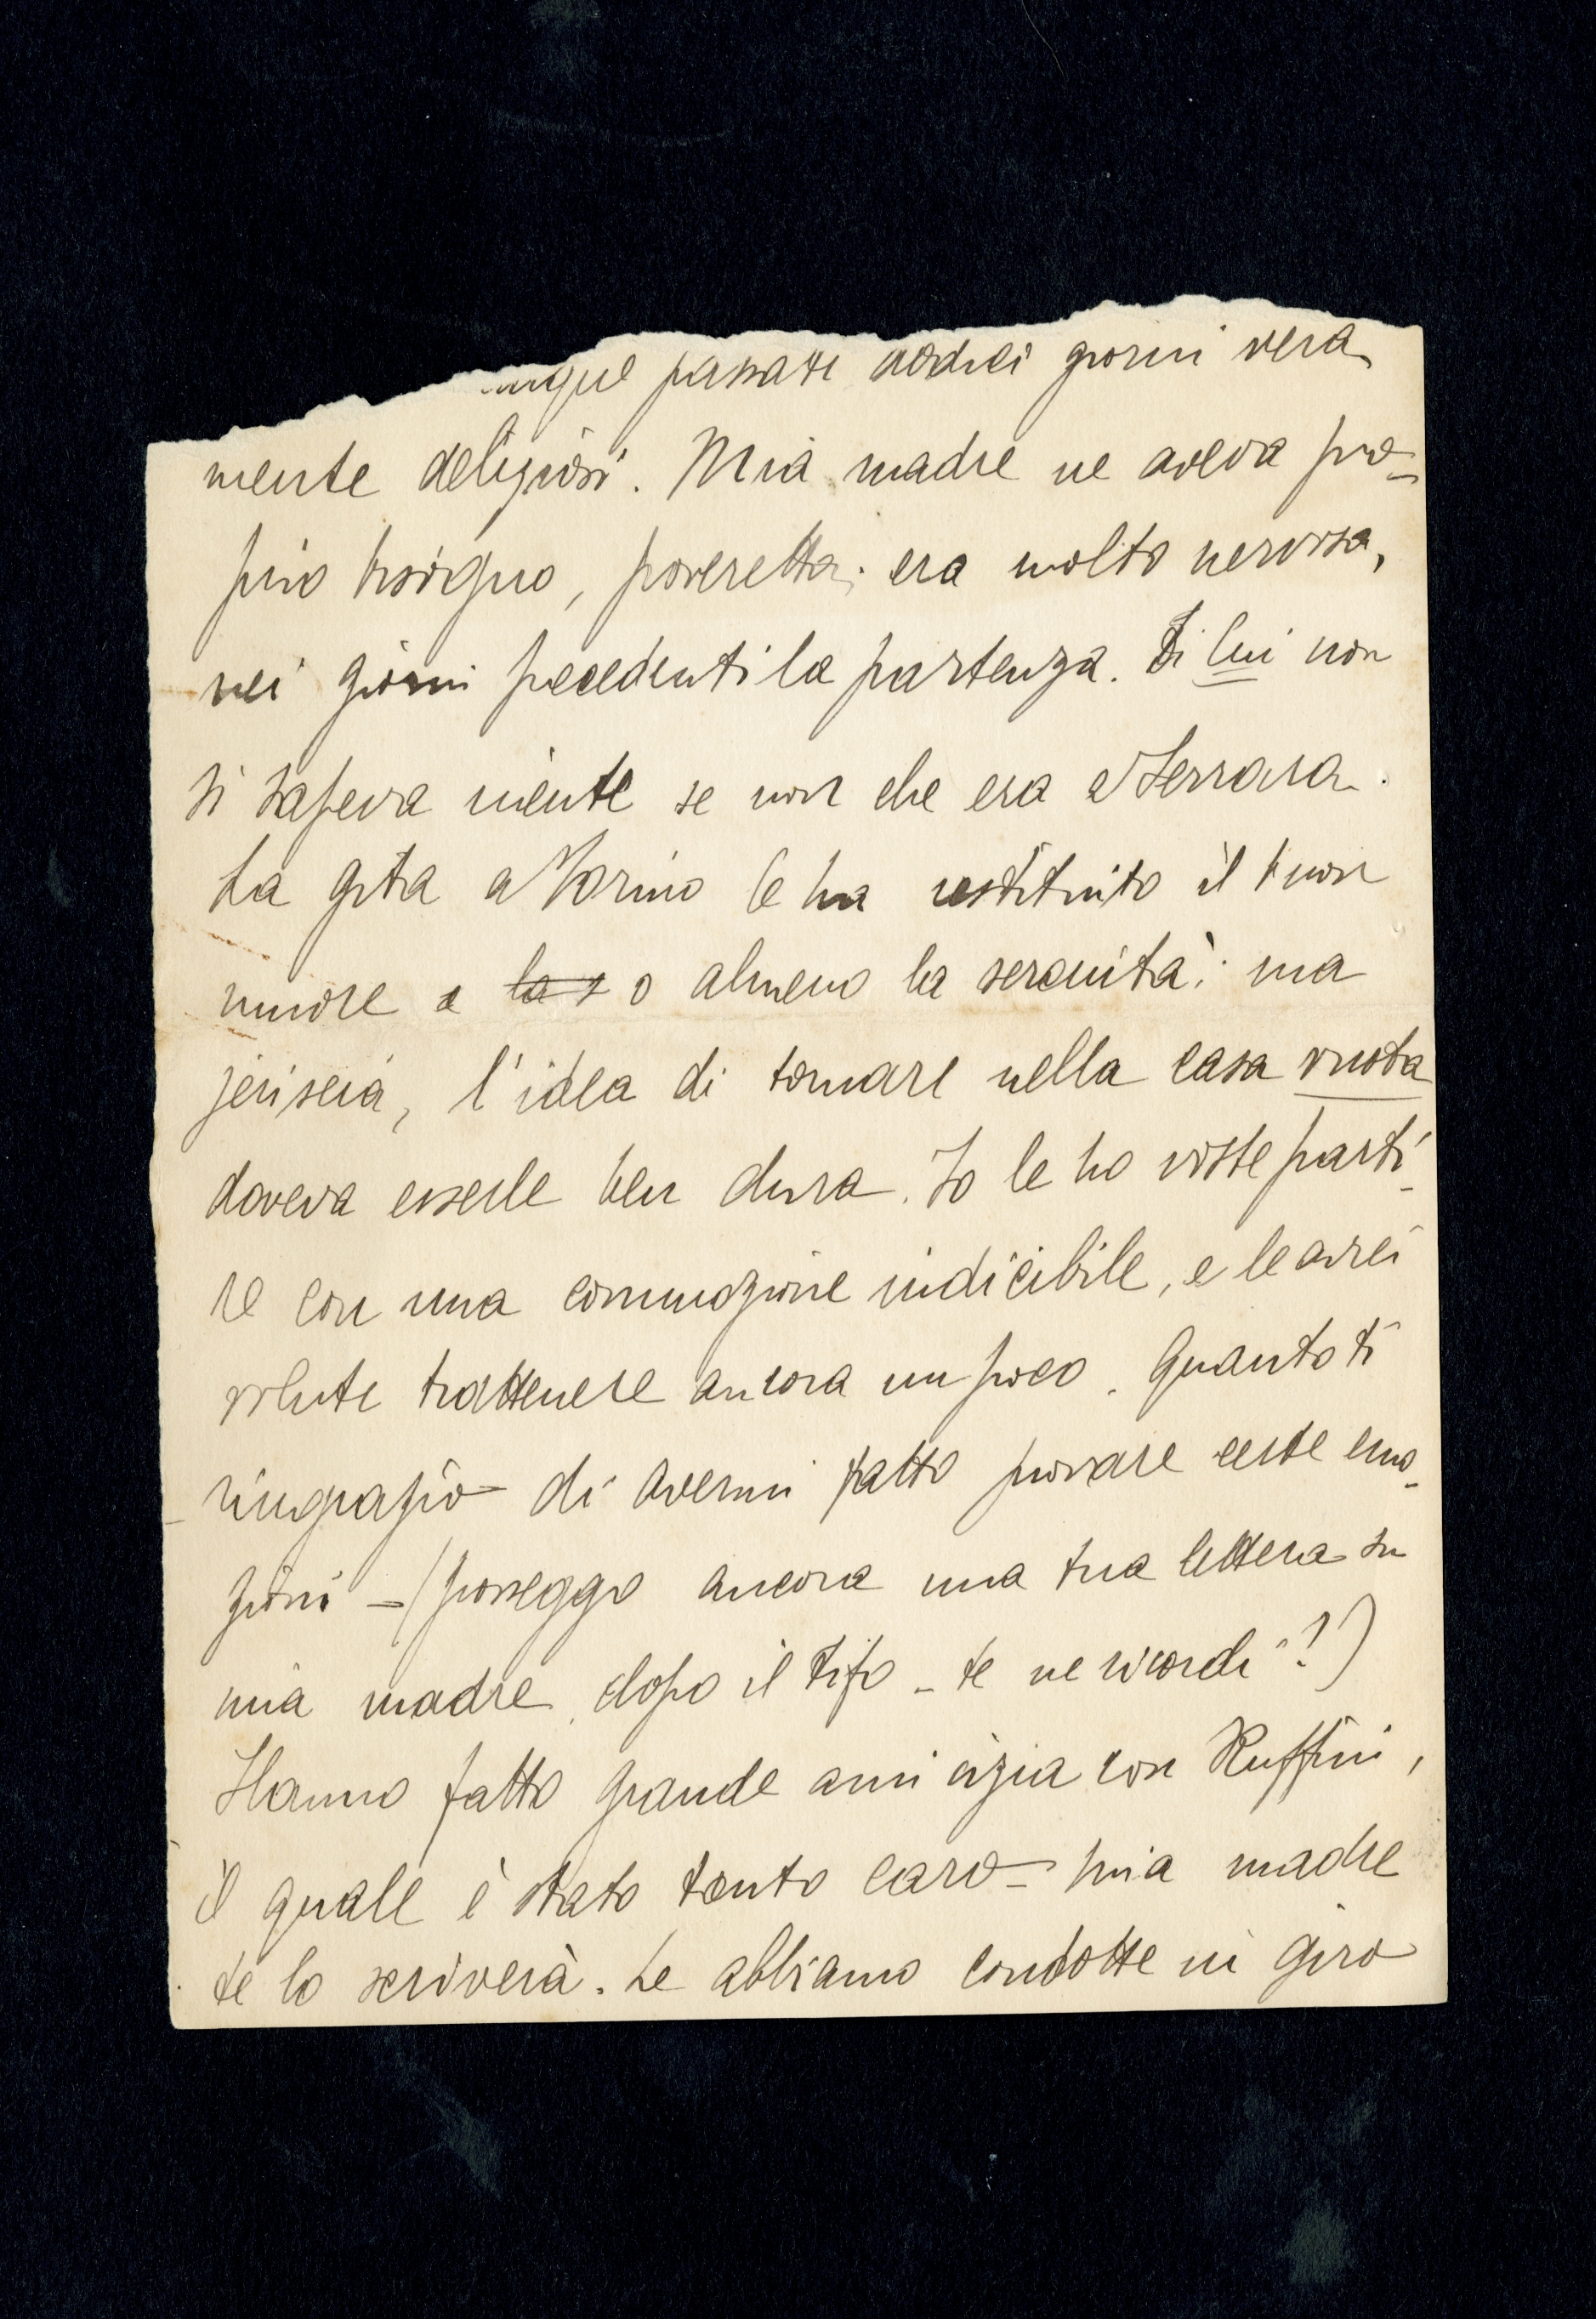 passati dodici giorni vera-
mente deliziosi. Mia madre ne aveva pro-
prio bisogno, poveretta; era molto nervosa,
nei giorni precedenti la partenza. Di lui non
si sapeva niente se non che era a Ferrara.
La gita a Torino le ha restituito il buon
umore e la s o almeno la serenità; ma
jersera, l'idea di tornare nella casa vuota
doveva esserle ben dura. Io le ho viste parti-
re con una commozione indicibile, e le avrei
volute trattenere ancora un poco. Quanto ti
ringrazio di avermi fatto provare certe emo-
zioni – (posseggo ancora una tua lettera su
mia madre, dopo il tifo – te ne ricordi?)
Hanno fatto grande amicizia con Ruffini,
il quale è stato tanto caro – mia madre
te lo scriverà. Le abbiamo condotte in giro